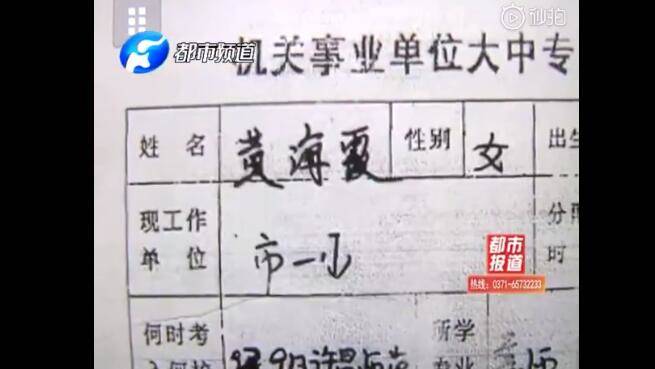 秒拍
都市频道
机关事业单位大中专
姓名 黄海霞 性别 女 出生
现工作
单位 市一小
时
都市
报道
热线：0371-65732233
何时考 所学